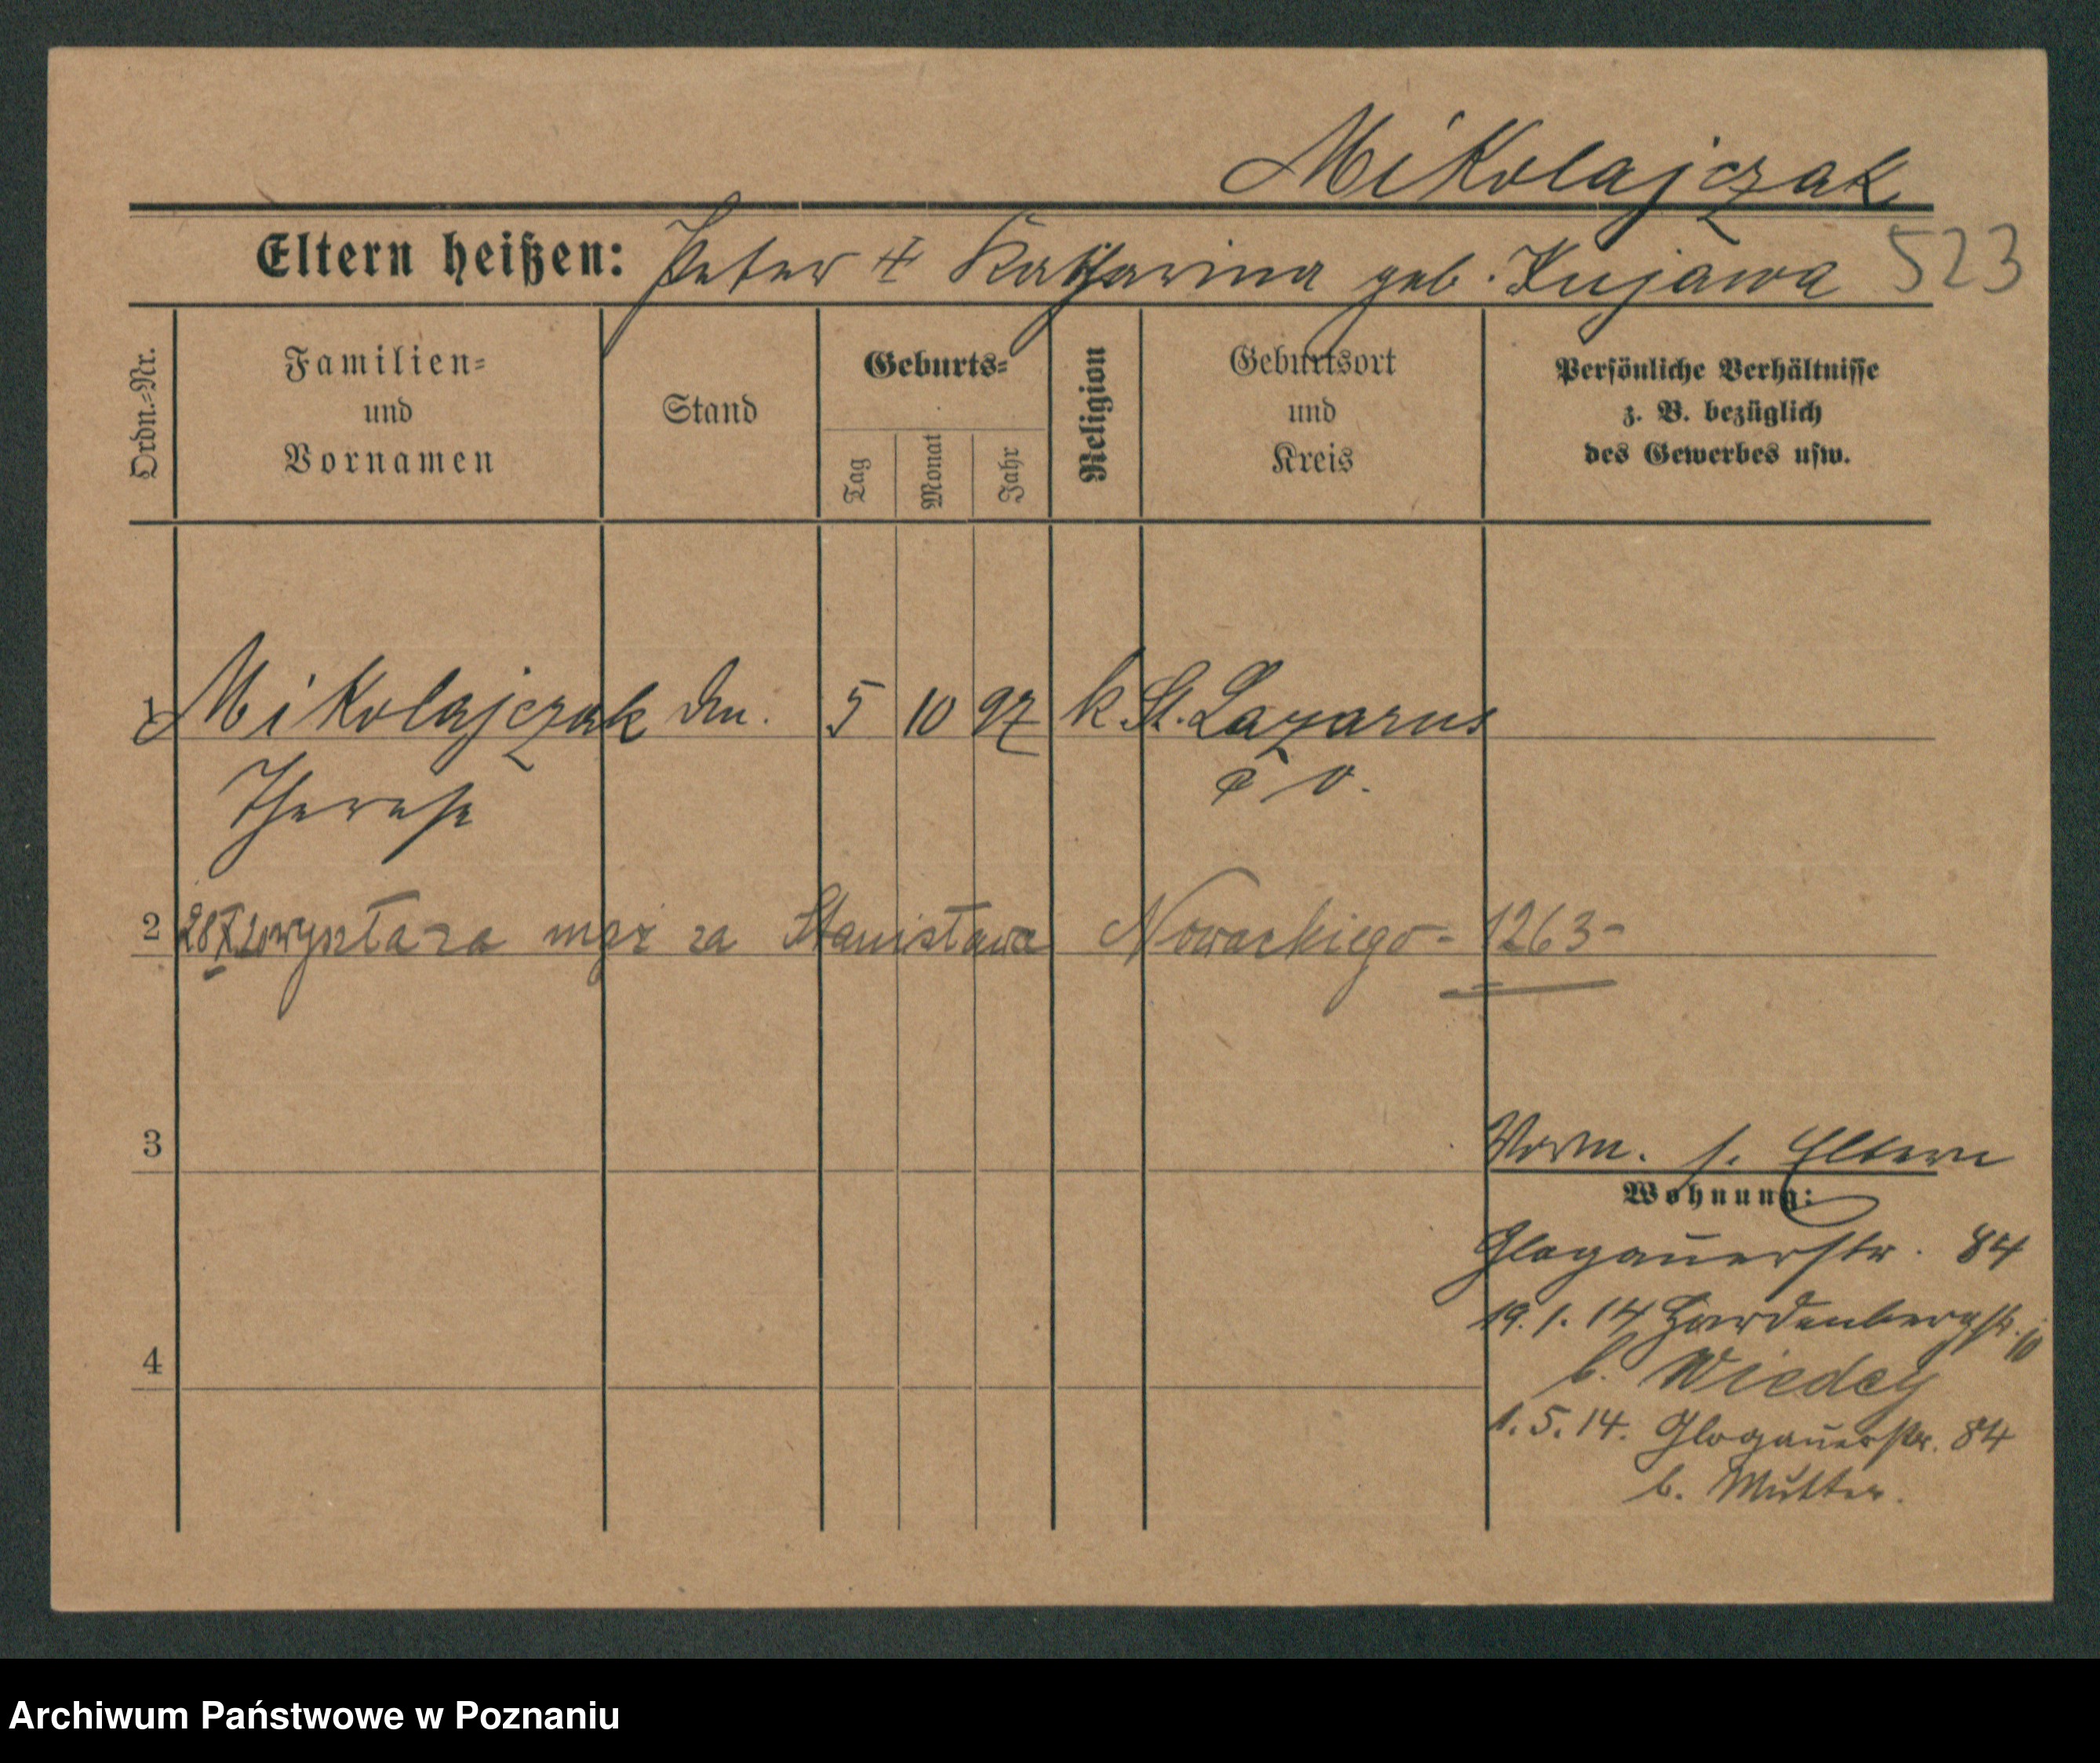 Mikolajczak
Eltern heißen: Peter & Katharina geb. Kujawa 523
Ordn.-Nr.
Familien-
und
Vornamen
Stand
Geburts-
Tag
Monat
Jahr
Religion
Geburtsort
und
Kreis
Persönliche Verhältnisse
z. B. bezüglich
des Gewerbes usw.
1 Mikolajczak 5 10 97 k St. Lazarus
Therese
2 wyszła za mąż za Stanisława Nowackiego - 1263 -
3
Vorm. s. Eltern
Wohnung:
Glogauerstr. 84
19. 1. 14 Hardenbergstr. 10
4
b. Wiedey
1. 5. 14. Glogauerstr. 84
b. Mutter.
Archiwum Państwowe w Poznaniu